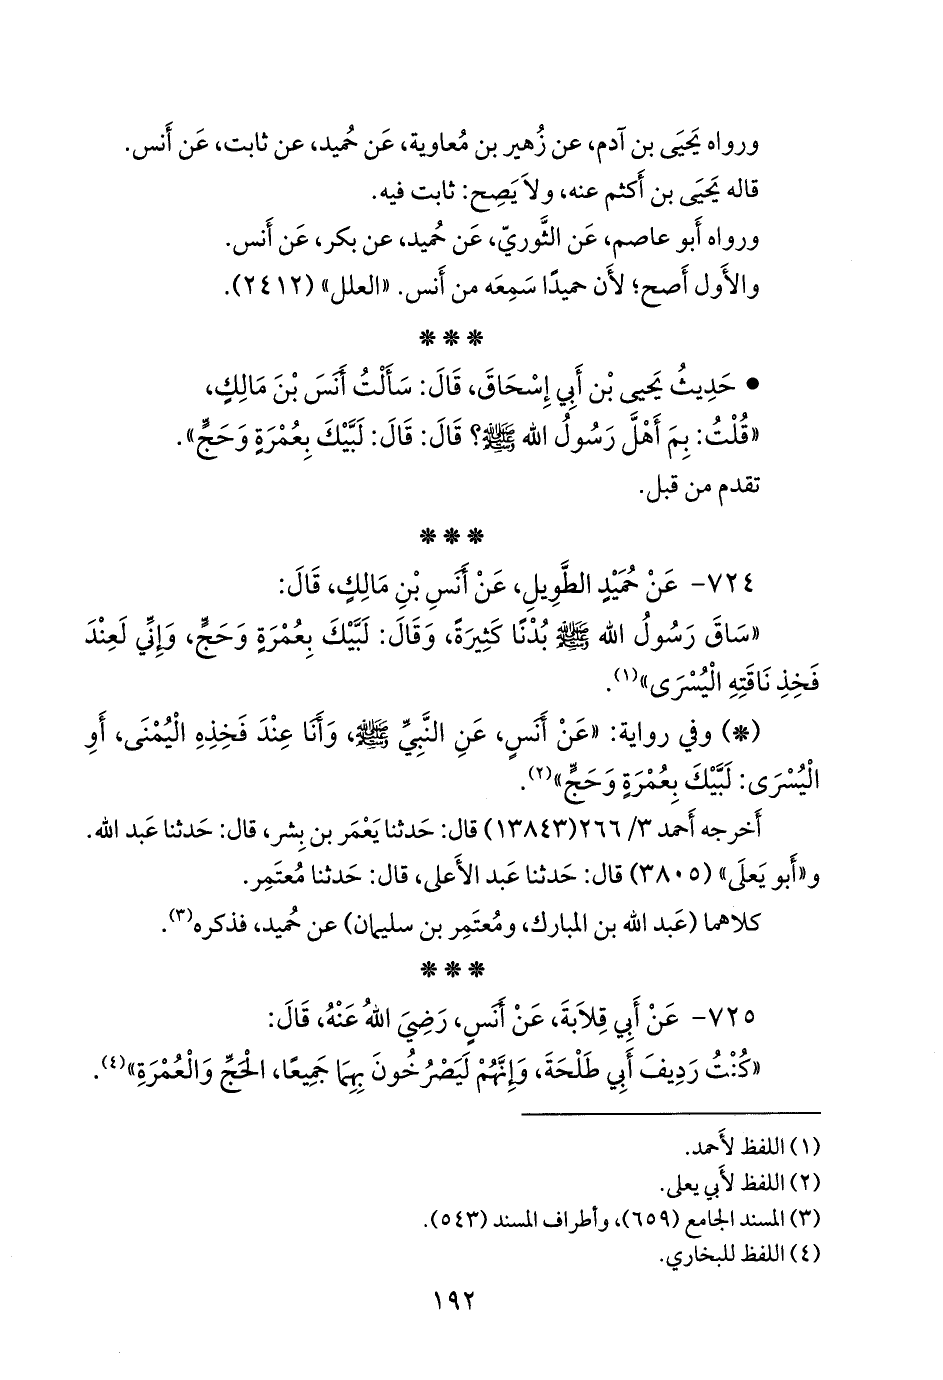 ورواه يَحيَى بن آدم، عن زُهير بن مُعاوية، عَن حُميد، عن ثابت، عَن أَنس.
قاله يَحيَى بن أَكثم عنه، ولاَ يَصِح: ثابت فيه.
ورواه أَبو عاصم، عَن الثَّوريّ، عَن حُميد، عن بكر، عَن أَنس.
والأَول أَصح؛ لأَن حميدًا سَمِعَه من أَنس. «العلل» (٢٤١٢).
* * *
• حَدِيثُ يَحيى بْن أَبي إِسْحَاقَ، قَالَ: سَأَلْتُ أَنَسَ بْنَ مَالِكٍ،
«قُلْتُ: بِمَ أَهْلَّ رَسُولُ الله ﷺ؟ قَالَ: قَالَ: لَبَّيْكَ بِعُمْرَةٍ وَحَجٍّ».
تقدم من قبل.
* * *
٧٢٤- عَنْ حُمَيْدٍ الطَّوِيلِ، عَنْ أَنَسِ بْنِ مَالِكٍ، قَالَ:
«سَاقَ رَسُولُ الله ﷺ بُدْنًا كَثِيرَةً، وَقَالَ: لَبَّيْكَ بِعُمْرَةٍ وَحَجٍّ، وَإِنِّي لَعِنْدَ
فَخِذِ نَاقَتِهِ الْيُسْرَى»(١).
(*) وفي رواية: «عَنْ أَنَسٍ، عَنِ النَّبِيِّ ﷺ، وَأَنَا عِنْدَ فَخِذِهِ الْيُمْنَى، أَوِ
الْيُسْرَى: لَبَّيْكَ بِعُمْرَةٍ وَحَجٍّ»(٢).
أخرجه أحمد ٣/ ٢٦٦(١٣٨٤٣) قال: حَدثنا يَعْمَر بن بِشر، قال: حَدثنا عَبد الله.
و«أَبو يَعلَى» (٣٨٠٥) قال: حَدثنا عَبد الأَعلى، قال: حَدثنا مُعتَمِر.
كلاهما (عَبد الله بن المبارك، ومُعتَمِر بن سليمان) عن حُميد، فذكره(٣).
* * *
٧٢٥- عَنْ أَبِي قِلاَبَةَ، عَنْ أَنَسٍ، رَضِيَ اللهُ عَنْهُ، قَالَ:
«كُنْتُ رَدِيفَ أَبِي طَلْحَةَ، وَإِنَّهُمْ لَيَصْرُخُونَ بِهِمَا جَمِيعًا، الْحَجِّ وَالْعُمْرَةِ»(٤).
(١) اللفظ لأَحمد.
(٢) اللفظ لأَبي يعلى.
(٣) المسند الجامع (٦٥٩)، وأطراف المسند (٥٤٣).
(٤) اللفظ للبخاري.
١٩٢